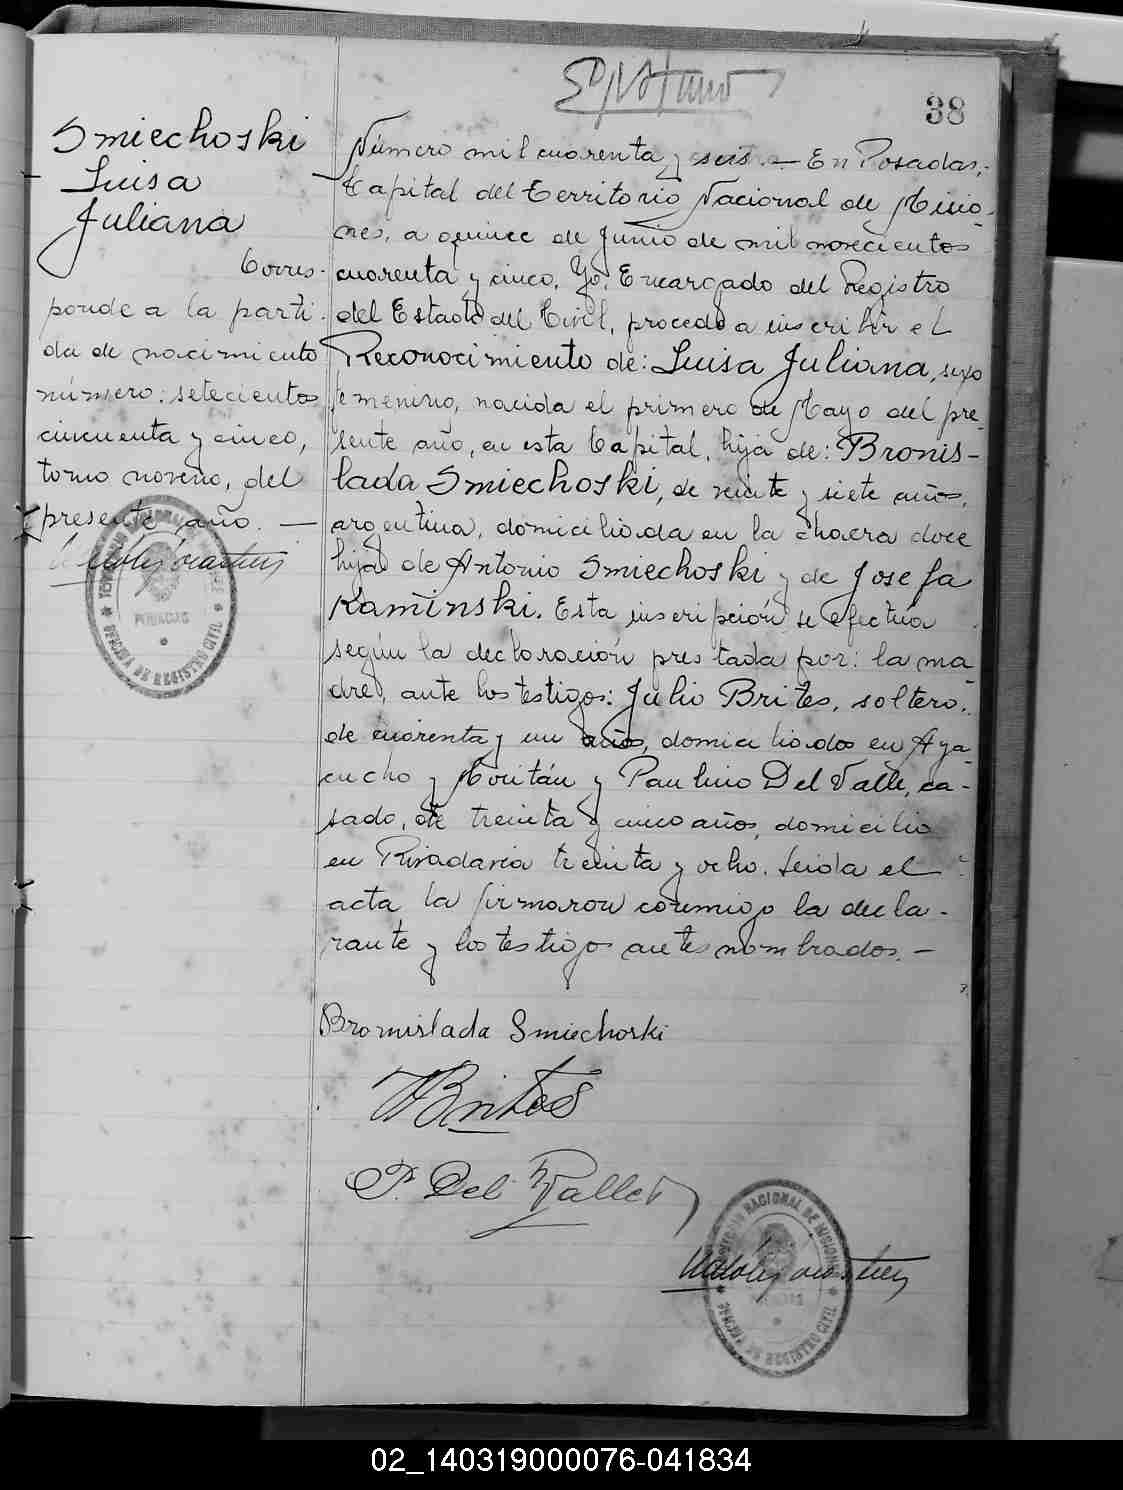 38
Smiechoski
Luisa
Juliana
Corres-
ponde a la parti-
da de nacimiento
número: setecientos
cincuenta y cinco,
tomo noveno, del
presente año. —
Número mil cuarenta y seis.— En Posadas,
Capital del Territorio Nacional de Misio-
nes, a quince de Junio de mil novecientos
cuarenta y cinco, Yo, Encargado del Registro
del Estado del Civil, procedo a inscribir el
Reconocimiento de: Luisa Juliana, sexo
femenino, nacida el primero de Mayo del pre-
sente año, en esta Capital, hija de: Bronis-
lada Smiechoski, de veinte y siete años,
argentina, domiciliada en la chacra doce
hija de Antonio Smiechoski y de Josefa
Kaminski. Esta inscripción se efectúa
según la declaración prestada por: la ma-
dre, ante los testigos: Julio Brites, soltero,
de cuarenta y un años, domiciliados en Aya-
cucho y Roritán y Paulino Del Valle, ca-
sado, de treinta y cinco años, domicilio
en Rivadavia treinta y ocho. Leida el
acta la firmaron conmigo la decla-
rante y los testigos antes nombrados. —
Bronislada Smiechoski
Brites
P. Del Valle
TERRITORIO NACIONAL DE MISIONES
POSADAS
OFICINA DE REGISTRO CIVIL
TERRITORIO NACIONAL DE MISIONES
POSADAS
OFICINA DE REGISTRO CIVIL
02_140319000076-041834